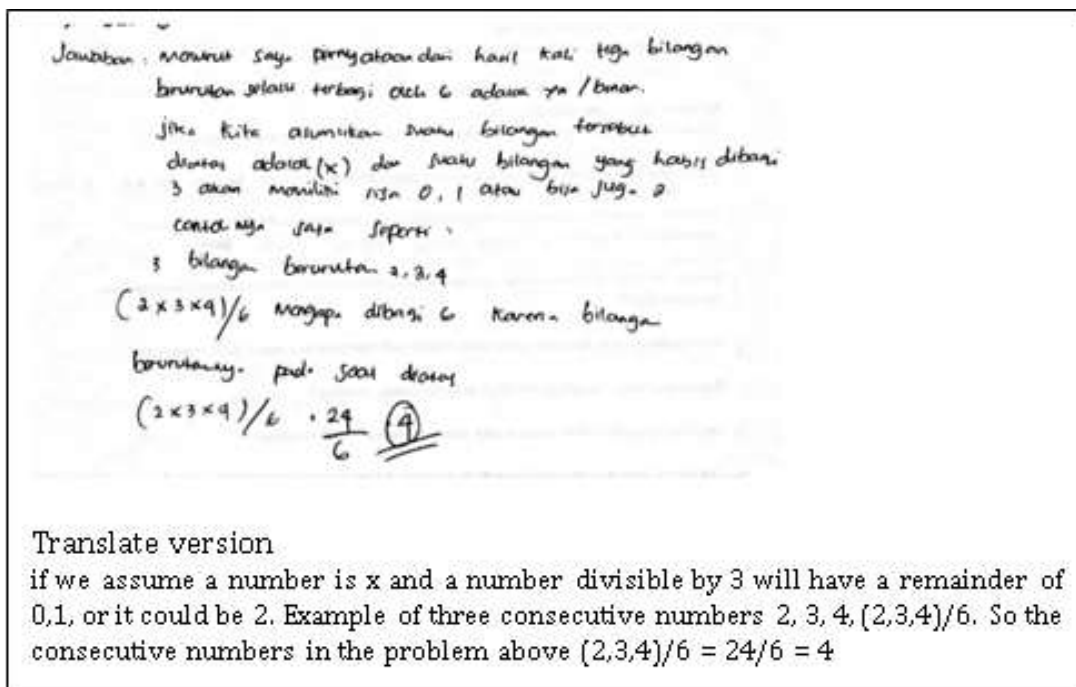 Jawaban : menurut saya pernyataan dari hasil kali tiga bilangan
berurutan selalu terbagi oleh 6 adalah ya / benar.
jika kita asumsikan suatu bilangan tersebut
diatas adalah (x) dan suatu bilangan yang habis dibagi
3 akan memiliki sisa 0, 1 atau bisa juga 2
contohnya saja seperti :
3 bilangan berurutan 2, 3, 4
(2 x 3 x 4)/6 mengapa dibagi 6 karena bilangan
berurutannya pada soal diatas
(2 x 3 x 4)/6 = 24/6 4
Translate version
if we assume a number is x and a number divisible by 3 will have a remainder of
0,1, or it could be 2. Example of three consecutive numbers 2, 3, 4, (2,3,4)/6. So the
consecutive numbers in the problem above (2,3,4)/6 = 24/6 = 4